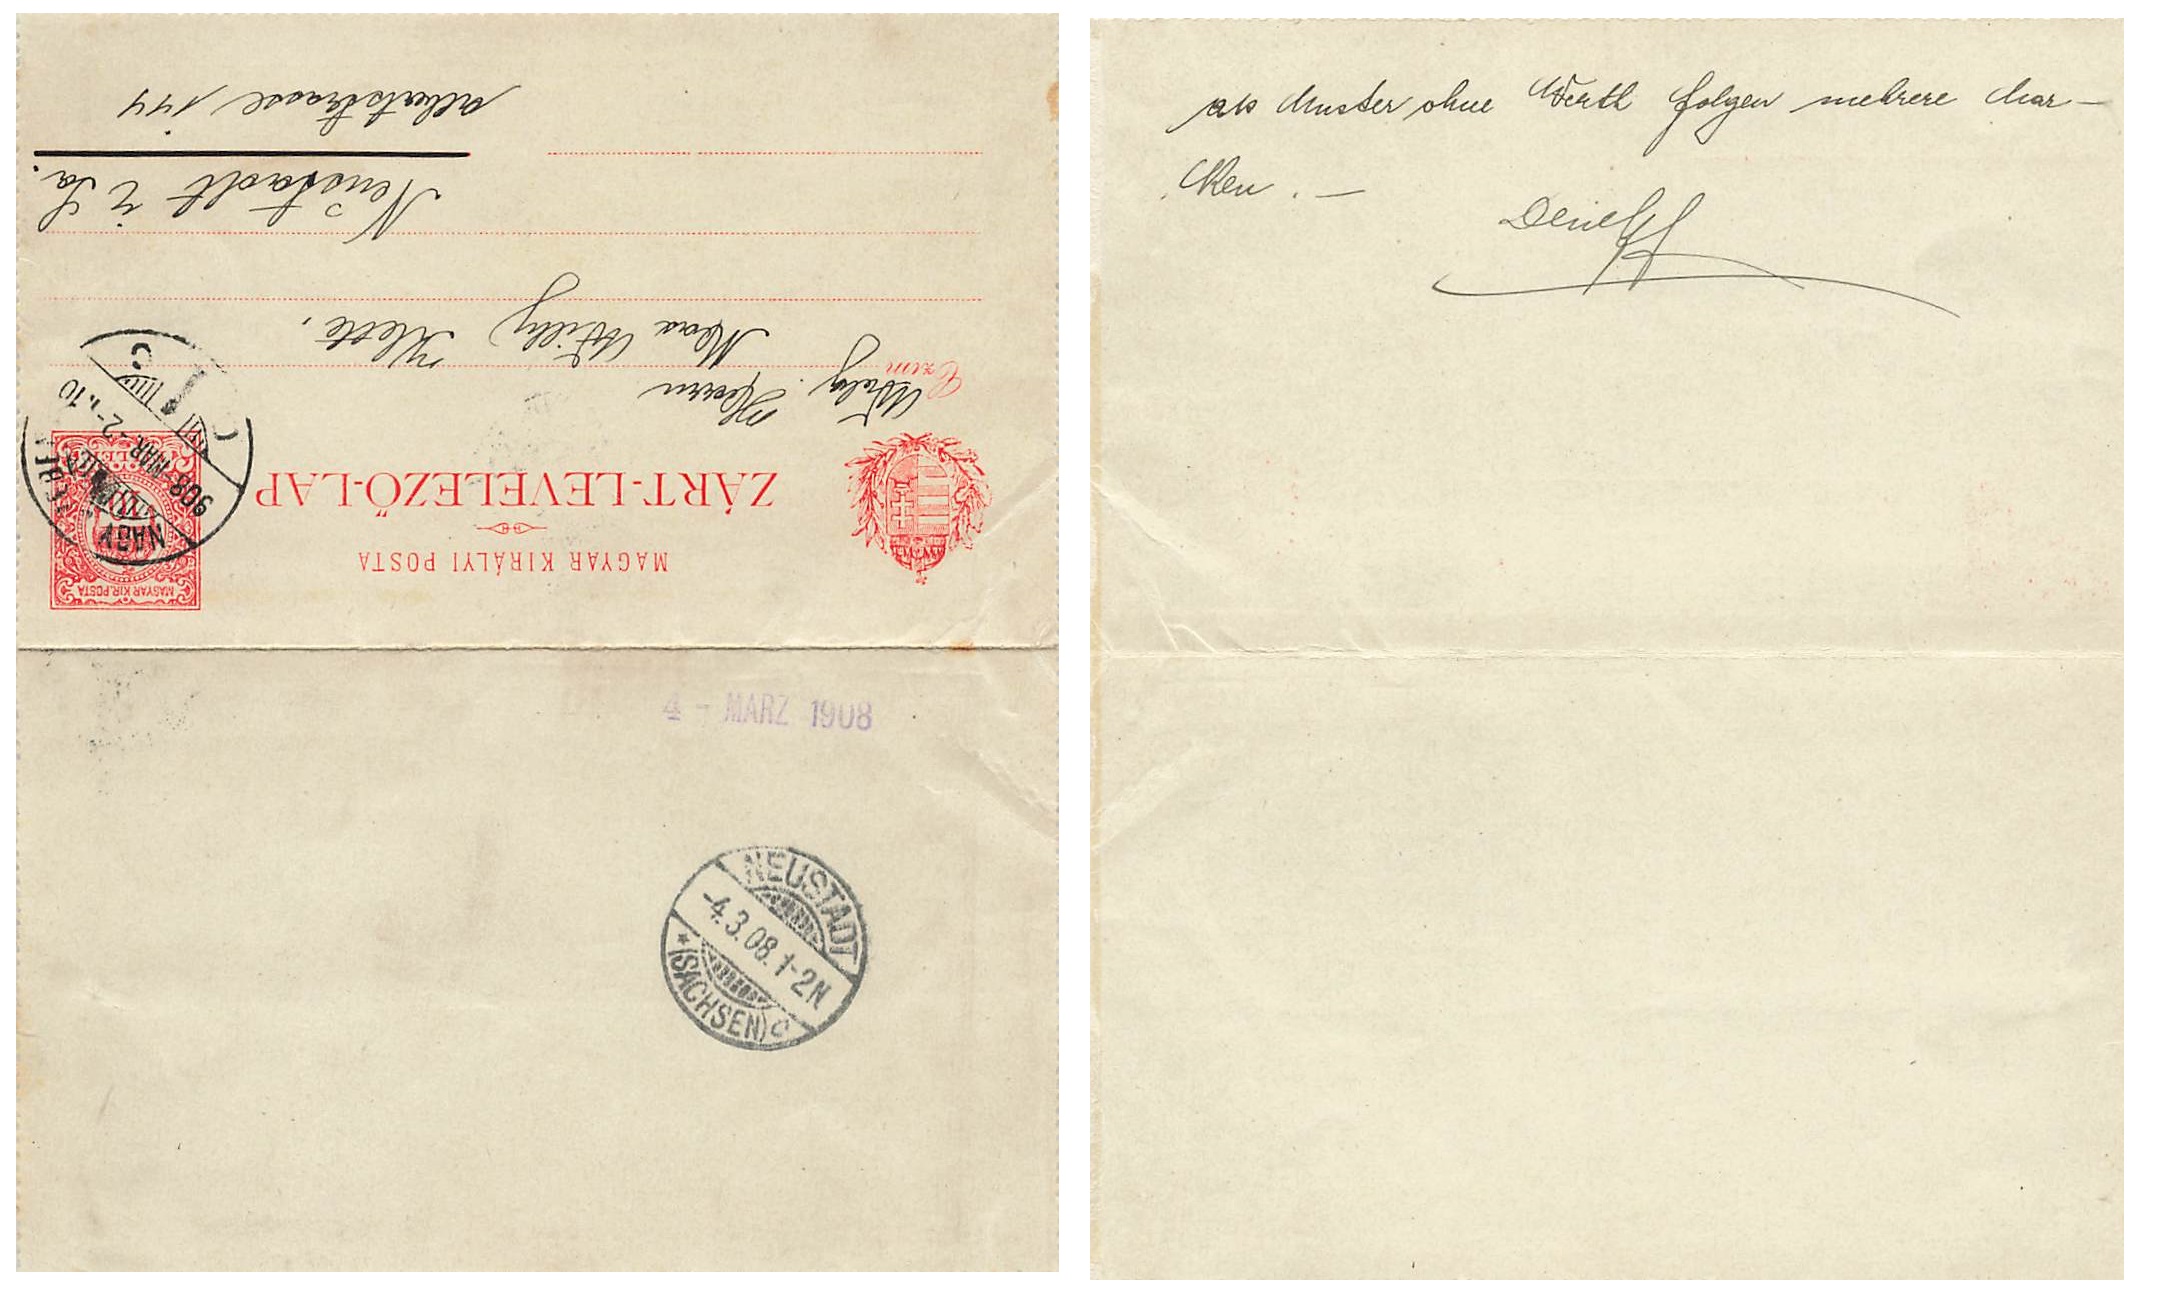 MAGYAR KIRÁLYI POSTA
ZÁRT-LEVELEZŐ-LAP
MAGYAR KIR. POSTA
NAGY
908 MAR -2
C
Czim
Herrn
Max Willy
Neustadt i/Sa.
Albertstrasse 144
4 - MÄRZ 1908
NEUSTADT
-4.3.08.1-2N
*(SACHSEN)c
als Muster ohne Werth folgen mehrere Mar-
ken. -